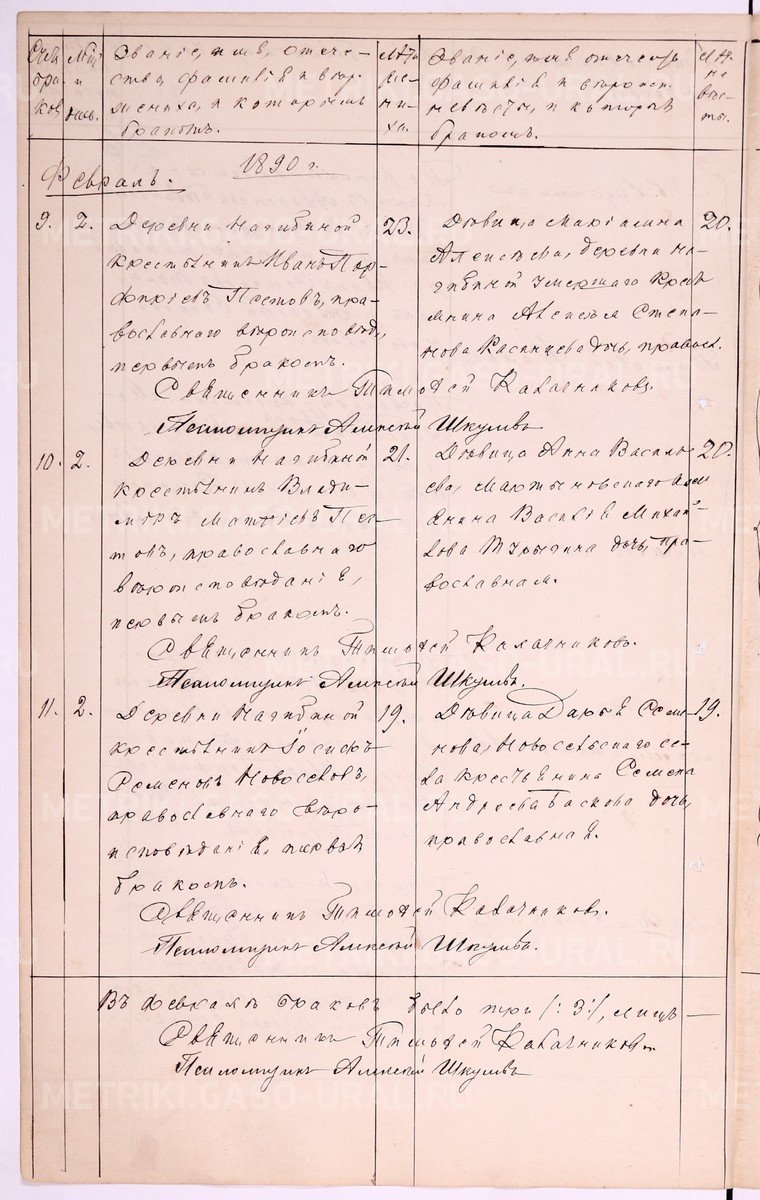 Счетъ браковъ
Мѣсяцъ и день.
Званіе, имя, отче-
ство, фамилія и вѣро-
жениха, и которымъ
бракомъ.
Лѣта жениха.
Званіе, имя, отчество,
фамилія и вѣроисп.
невѣсты, и которымъ
бракомъ.
Лѣта невѣсты.
1890 г.
Февраль.
9. 2. Деревни Нагибиной
крестьянинъ Иванъ Пор-
фиріевъ Постовъ, пра-
вославнаго вѣроисповѣд.,
первымъ бракомъ.
23.
Дѣвица
Алексѣева, деревни На-
гибиной умершаго крест
янина Алексѣя Степа-
нова дочь, правосл.
20.
Священникъ Тимофей Калачниковъ.
Псаломщикъ Алексѣй Шкулевъ
10. 2. Деревни Нагибиной
крестьянинъ Влади-
міръ Матѳіевъ Пос
товъ, православнаго
вѣроисповѣданія,
первымъ бракомъ.
21.
Дѣвица Анна Василь
ева, Мартыновскаго
янина Василія Михай-
лова дочь, пра-
вославная.
20.
Священникъ Тимофей Калачниковъ.
Псаломщикъ Алексѣй Шкулевъ.
11. 2. Деревни Нагибиной
крестьянинъ Іосифъ
Семеновъ Новоселовъ,
православнаго вѣро-
исповѣданія, первымъ
бракомъ.
19.
Дѣвица Дарья Семе
нова, Новосельскаго се-
ла крестьянина Семена
Андреева Баскова дочь,
православная.
19.
Священникъ Тимофей Калачниковъ.
Псаломщикъ Алексѣй Шкулевъ.
Въ Февралѣ браковъ было три /:3:/, лицъ —
Священникъ Тимофей Калачниковъ
Псаломщикъ Алексѣй Шкулевъ
METRIKI.GASO-URAL.RU